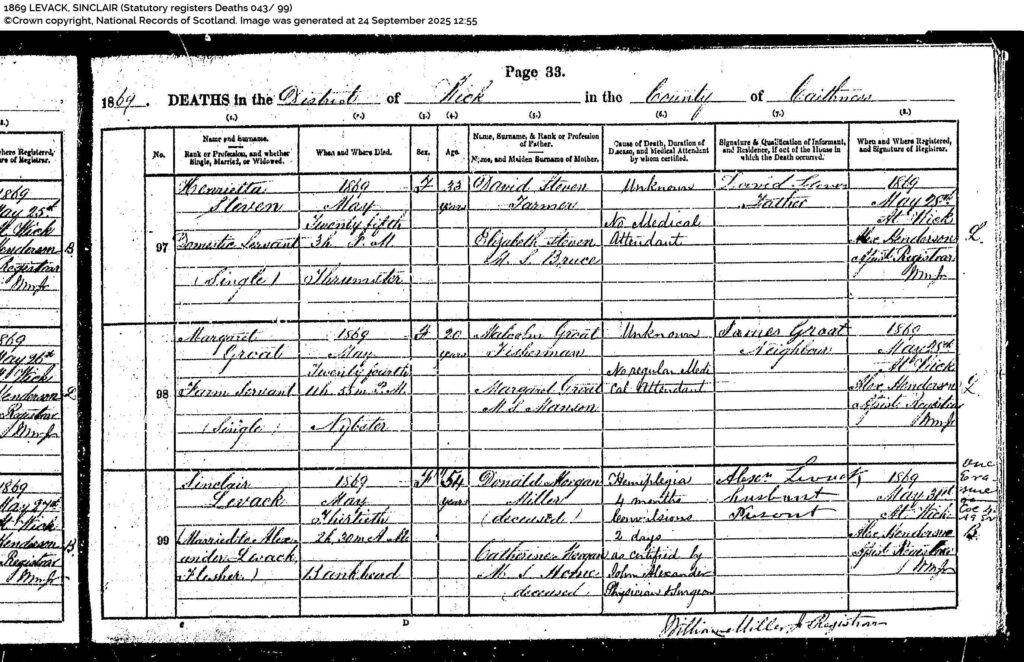 1869 LEVACK, SINCLAIR (Statutory registers Deaths 043/ 99)
©Crown copyright, National Records of Scotland. Image was generated at 24 September 2025 12:55
Page 33.
1869. DEATHS in the District of Wick in the County of Caithness
(1.) (2.) (3.) (4.) (5.) (6.) (7.) (8.)
No.
Name and Surname.
Rank or Profession, and whether Single, Married, or Widowed.
When and Where Died.
Sex.
Age.
Name, Surname, & Rank or Profession of Father.
Name, and Maiden Surname of Mother.
Cause of Death, Duration of Disease, and Medical Attendant by whom certified.
Signature & Qualification of Informant, and Residence, if out of the House in which the Death occurred.
When and Where Registered, and Signature of Registrar.
97
Henrietta
Steven
Domestic Servant
(Single)
1869
May
Twenty fifth
3h P.M.
Thrumster
F
33
years
David Steven
Farmer
Elizabeth Steven
M.S. Bruce
Unknown
No Medical
Attendant
David Steven
Father
1869
May 28th
At Wick
Alex Henderson
Assist. Registrar
98
Margaret
Groat
Farm Servant
(Single)
1869
May
Twenty fourth
11h. 55m P.M.
Nybster
F
20
years
Malcolm Groat
Fisherman
Margaret Groat
M.S. Manson
Unknown
No regular Medi
cal Attendant
James Groat
Neighbour
1869
May 28th
At Wick
Alex Henderson
Assist. Registrar
99
Sinclair
Levack
(Married to Alex-
ander Levack,
Flesher.)
1869
May
Thirtieth
2h. 30m A.M.
Bankhead
F
54
years
Donald Morgan
Miller
(deceased)
Catherine Morgan
M.S. Horne
deceased
Hemiplegia
4 months
Convulsions
2 days
as certified by
John Alexander
Physician & Surgeon
Alexr Levack,
husband
Present
1869
May 31st
At Wick
Alex Henderson
Assist. Registrar
One
Era
sure
Col 4.
B.
William Miller Registrar